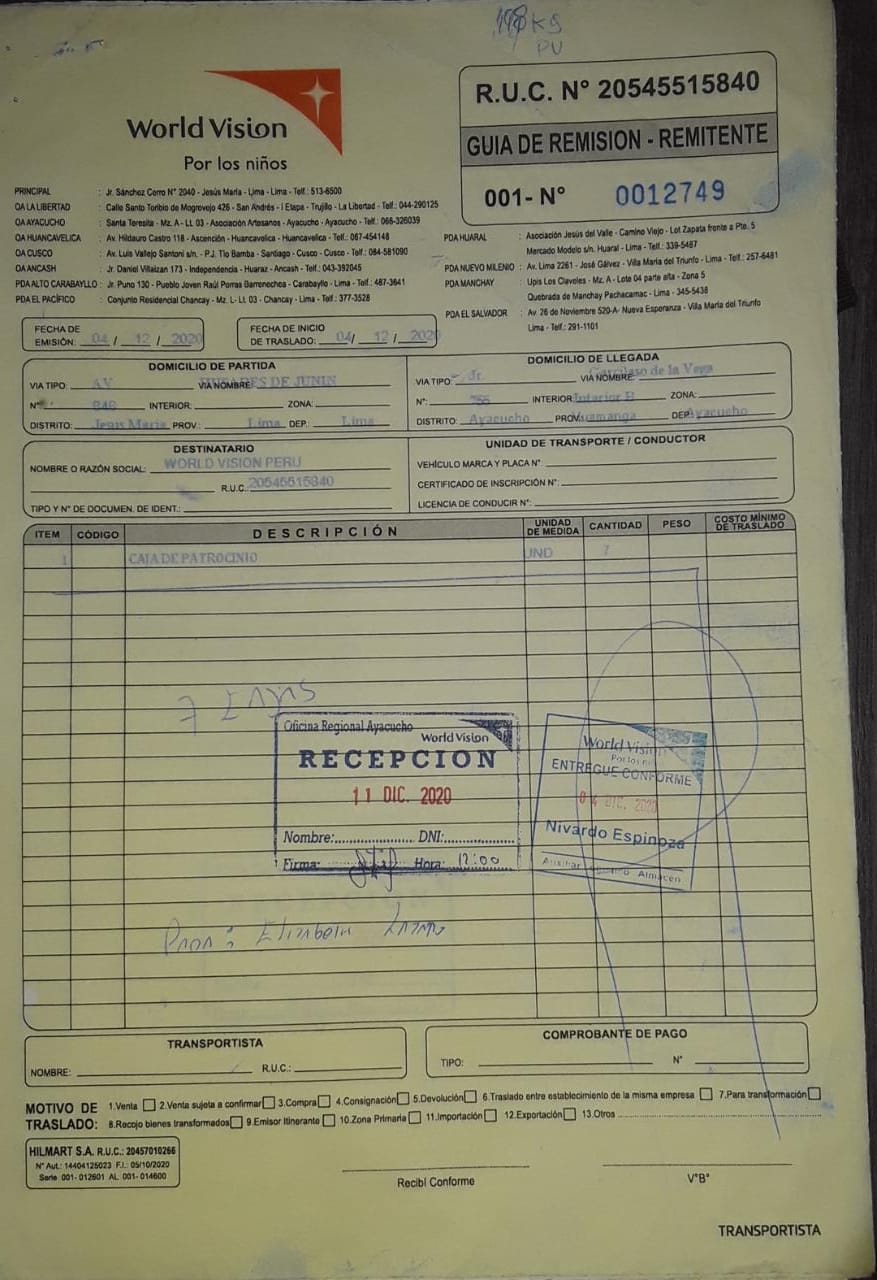 KG
PU
World Vision
Por los niños
R.U.C. N° 20545515840
GUIA DE REMISION - REMITENTE
001- N° 0012749
PRINCIPAL : Jr. Sánchez Cerro N° 2040 - Jesús María - Lima - Lima - Telf.: 513-6500
OA LA LIBERTAD : Calle Santo Toribio de Mogrovejo 426 - San Andrés - I Etapa - Trujillo - La Libertad - Telf.: 044-290125
OA AYACUCHO : Santa Teresita - Mz. A - Lt. 03 - Asociación Artesanos - Ayacucho - Ayacucho - Telf.: 066-326039
OA HUANCAVELICA : Av. Hildauro Castro 118 - Ascención - Huancavelica - Huancavelica - Telf.: 067-454148
OA CUSCO : Av. Luis Vallejo Santoni s/n. - P.J. Tío Bamba - Santiago - Cusco - Cusco - Telf.: 084-581090
OA ANCASH : Jr. Daniel Villaizan 173 - Independencia - Huaraz - Ancash - Telf.: 043-392045
PDA ALTO CARABAYLLO : Jr. Puno 130 - Pueblo Joven Raúl Porras Barrenechea - Carabayllo - Lima - Telf.: 487-3641
PDA EL PACÍFICO : Conjunto Residencial Chancay - Mz. L- Lt. 03 - Chancay - Lima - Telf.: 377-3528
PDA HUARAL : Asociación Jesús del Valle - Camino Viejo - Lot Zapata frente a Pte. 5
Mercado Modelo s/n. Huaral - Lima - Telf.: 339-5487
PDA NUEVO MILENIO : Av. Lima 2261 - José Gálvez - Villa María del Triunfo - Lima - Telf.: 257-6481
PDA MANCHAY : Upis Los Claveles - Mz. A - Lote 04 parte alta - Zona 5
Quebrada de Manchay Pachacamac - Lima - 345-5438
PDA EL SALVADOR : Av. 26 de Noviembre 520-A- Nueva Esperanza - Villa María del Triunfo
Lima - Telf.: 291-1101
FECHA DE EMISIÓN: 04 / 12 / 2020
FECHA DE INICIO DE TRASLADO: 04 / 12 / 2020
DOMICILIO DE PARTIDA
VIA TIPO: AV VIA NOMBRE: HUSARES DE JUNIN
N° 848 INTERIOR: ZONA:
DISTRITO: Jesus Maria PROV.: Lima DEP.: Lima
DOMICILIO DE LLEGADA
VIA TIPO: Jr. VIA NOMBRE: Garcilaso de la Vega
N°: INTERIOR: Interior B ZONA:
DISTRITO: Ayacucho PROV.: Huamanga DEP.: Ayacucho
DESTINATARIO
NOMBRE O RAZÓN SOCIAL: WORLD VISION PERU
R.U.C. 20545515840
TIPO Y N° DE DOCUMEN. DE IDENT.:
UNIDAD DE TRANSPORTE / CONDUCTOR
VEHÍCULO MARCA Y PLACA N°:
CERTIFICADO DE INSCRIPCIÓN N°:
LICENCIA DE CONDUCIR N°:
ITEM CÓDIGO DESCRIPCIÓN UNIDAD DE MEDIDA CANTIDAD PESO COSTO MÍNIMO DE TRASLADO
1 CAJA DE PATROCINIO UND 7
7 Cajas
Oficina Regional Ayacucho
World Vision
RECEPCION
11 DIC. 2020
Nombre: DNI:
Firma: Hora: 12:00
World Vision
Por los niños
ENTREGUE CONFORME
04 DIC. 2020
Nivardo Espinoza
Auxiliar Almacen
Para : Elizabeth
TRANSPORTISTA
NOMBRE: R.U.C.:
COMPROBANTE DE PAGO
TIPO: N°
MOTIVO DE TRASLADO:
1.Venta 2.Venta sujeta a confirmar 3.Compra 4.Consignación 5.Devolución 6.Traslado entre establecimiento de la misma empresa 7.Para transformación
8.Recojo bienes transformados 9.Emisor Itinerante 10.Zona Primaria 11.Importación 12.Exportación 13.Otros
HILMART S.A. R.U.C.: 20457010266
N° Aut.: 14404125023 F.I.: 05/10/2020
Serie 001- 012601 AL 001- 014600
Recibí Conforme
V°B°
TRANSPORTISTA